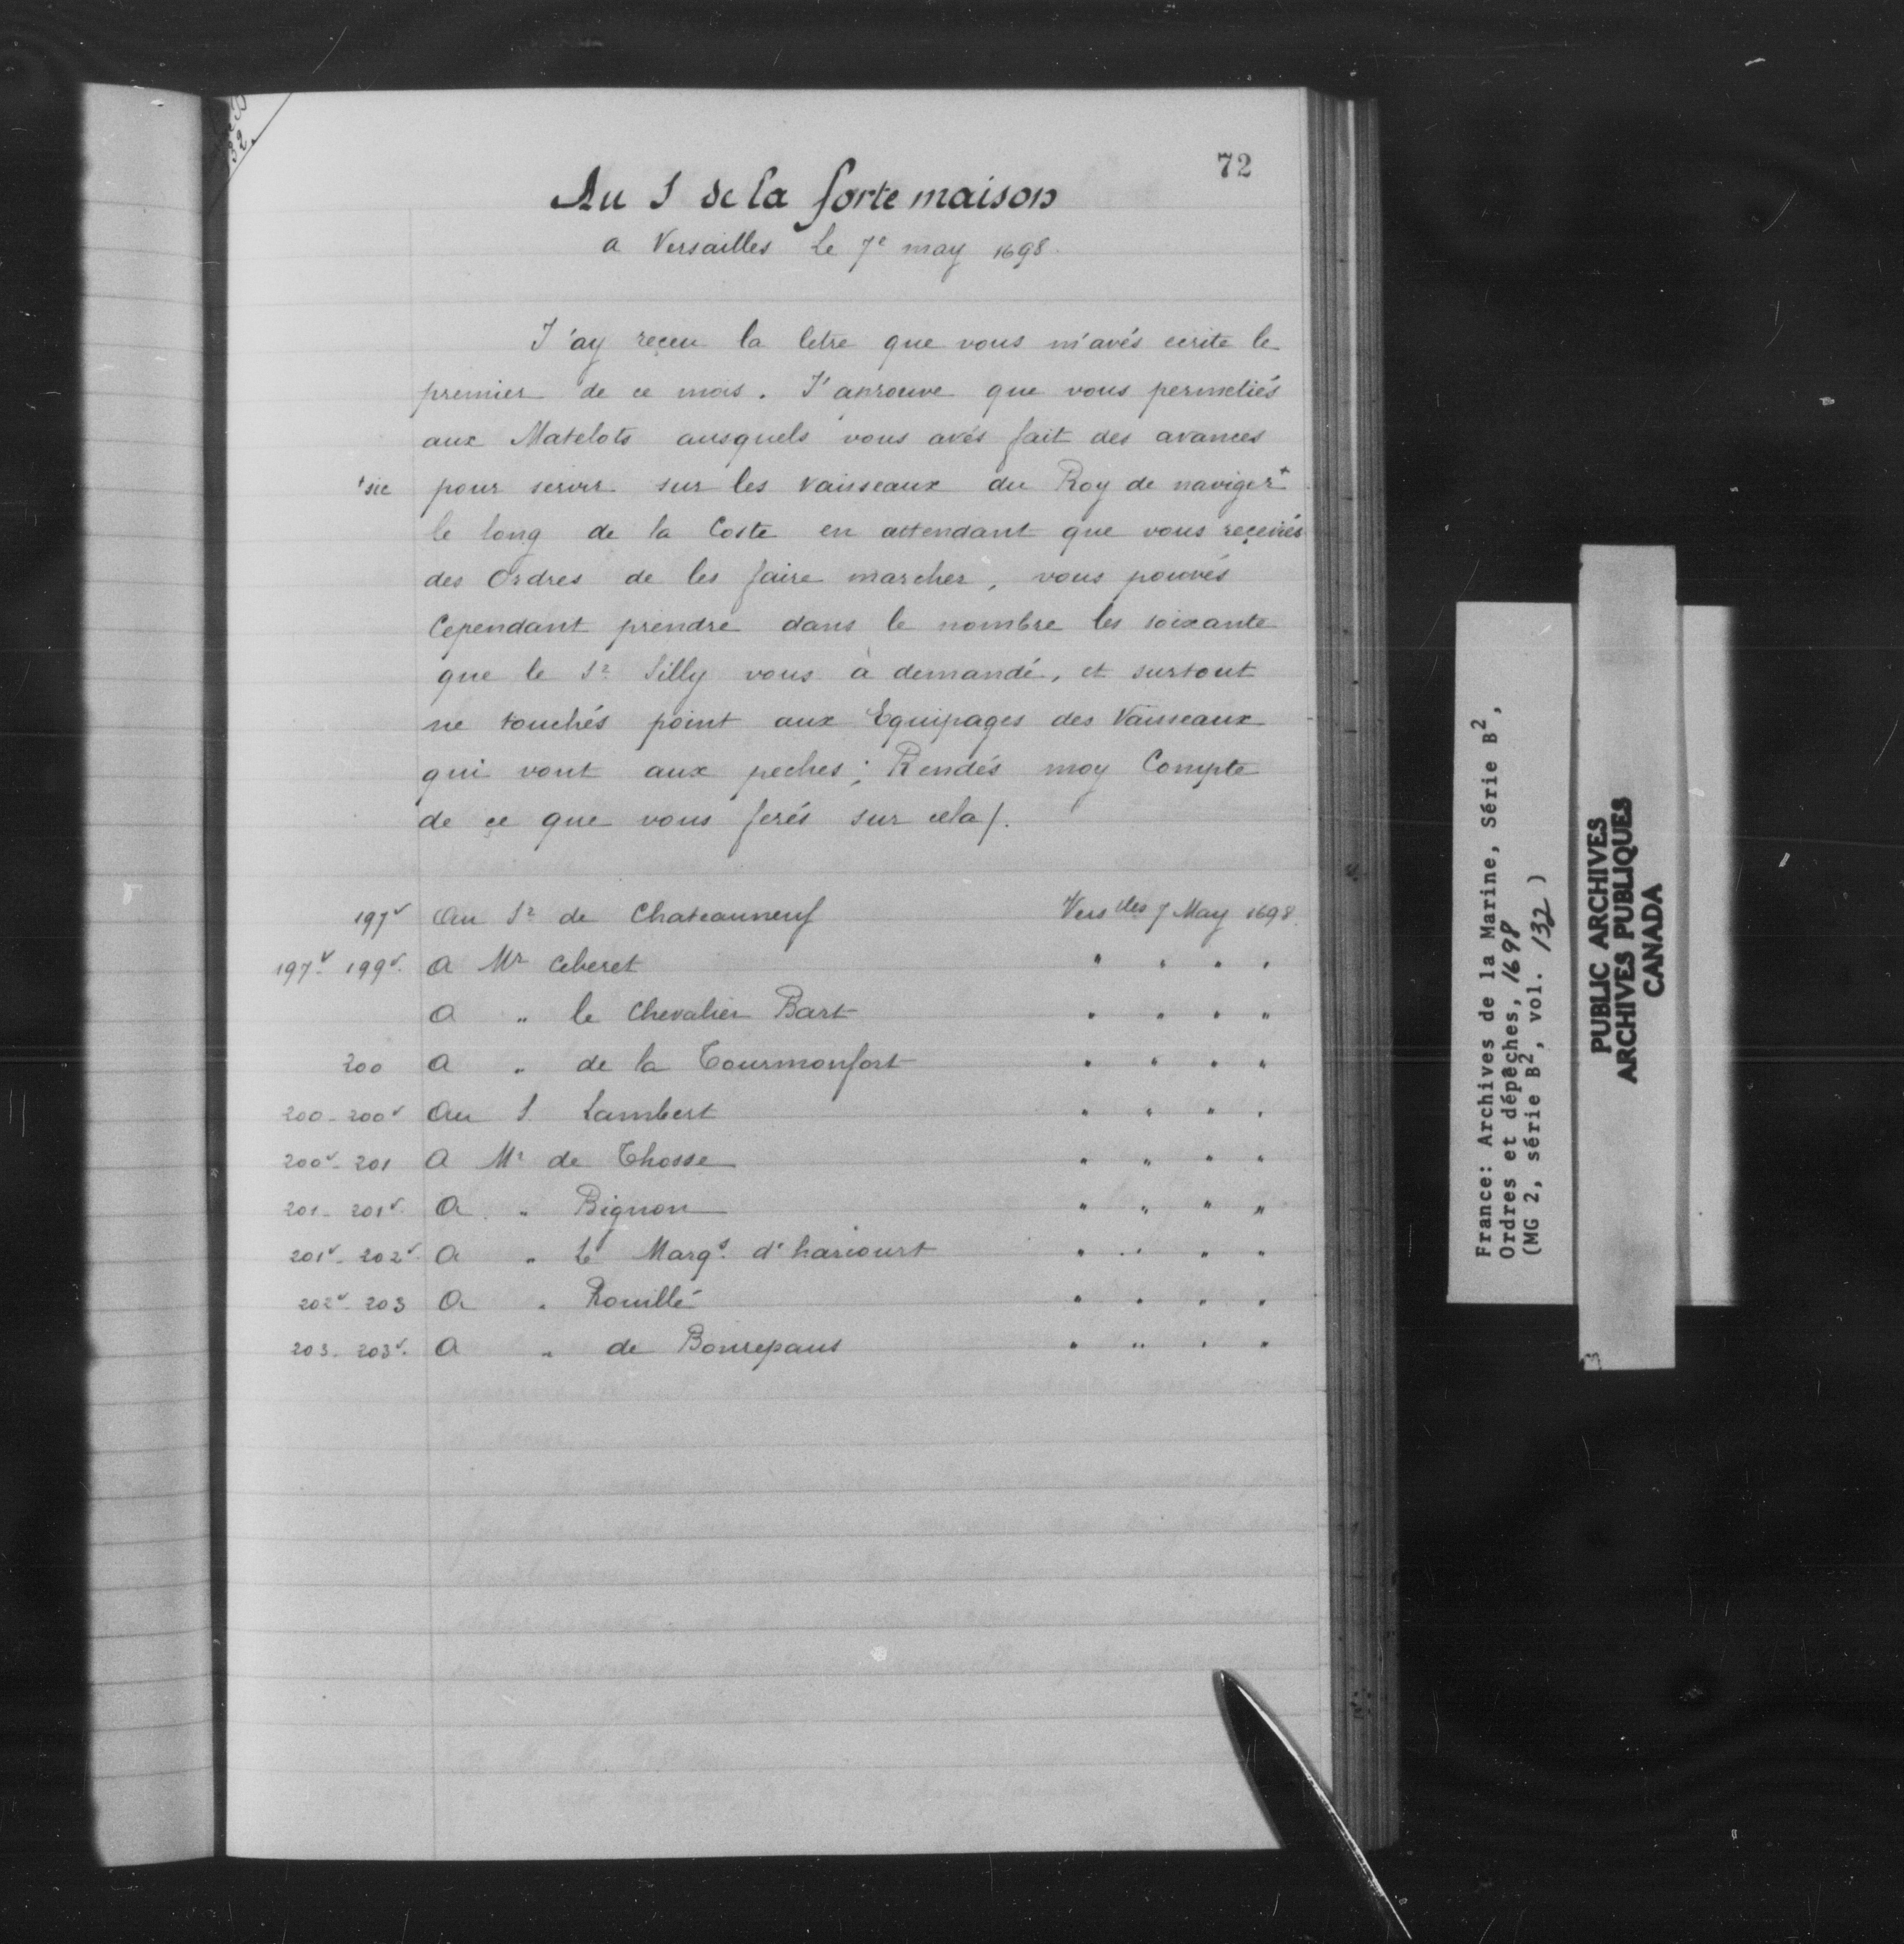 72
Au S de la forte maison
a Versailles Le 7e may 1698.
J'ay reçeu la letre que vous m'avés ecrite le
premier de ce mois. J'aprouve que vous permetiés
aux Matelots ausquels vous avés fait des avances
+sic pour servir sur les vaisseaux du Roy de naviger+
le long de la Coste en attendant que vous receviés
des Ordres de les faire marcher, vous pouvés
Cependant prendre dans le nombre les soixante
que le Sr Silly vous à demandé, et surtout
ne touchés point aux Equipages des Vaisseaux
qui vont aux peches; Rendés moy Compte
de ce que vous ferés sur cela/.
197v Au Sr de Chateauneuf Verslles 7 May 1698.
197v 199v. A Mr Ceberet " " " "
A " le Chevalier Bart " " " "
200 A " de la Tourmonfort " " " "
200-200v Au S. Lambert " " " "
200v-201 A Mr de Thosse " " " "
201-201v. A " Bignon " " " "
201v-202v. A " Le Marqs. d'harcourt " " " "
202v-203 A " Rouillé " " " "
203-203v. A " de Bonrepaus " " " "
France: Archives de la Marine, Série B2,
Ordres et dépêches, 1698
(MG 2, série B2, vol. 132)
PUBLIC ARCHIVES
ARCHIVES PUBLIQUES
CANADA